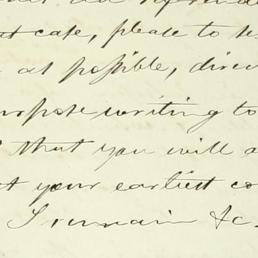 at case, please to se
as possible, direc
urpose writing to
that you will a
at your earliest co
I remain &c.